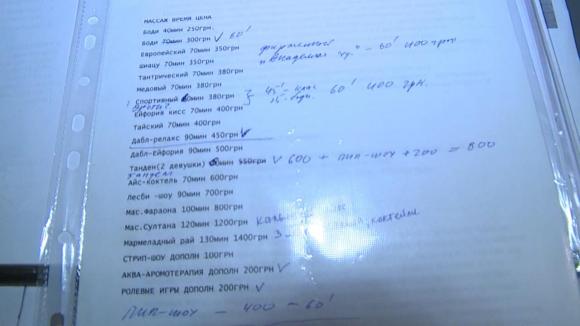 МАССАЖ ВРЕМЯ ЦЕНА
Боди 40мин 250грн.
Боди 70мин 300грн V 60'
Европейский 70мин 350грн
Шиацу 70мин 350грн
фирменный – 60' 400 грн
Тантрический 70мин 380грн
Медовый 70мин 380грн
Спортивный 60мин 380грн } 45' 15' 60' 400 грн.
Ейфория кисс 70мин 400грн
Тайский 70мин 400грн
Дабл-релакс 90мин 450грн V
Дабл-Ейфория 90мин 500грн
Танден(2 девушки) мин 550грн V 600 + ПИП-шоу +200 = 800
тандем
Айс-коктель 70мин 600грн
Лесби -шоу 90мин 700грн
Мас.Фараона 100мин 800грн
Мас.Султана 120мин 1200грн
Мармеладный рай 130мин 1400грн коктейли
СТРИП-ШОУ ДОПОЛН 100ГРН
АКВА-АРОМОТЕРАПИЯ ДОПОЛН 200ГРН V
РОЛЕВЫЕ ИГРЫ ДОПОЛН 200ГРН V
ПИП-ШОУ – 400 – 60'